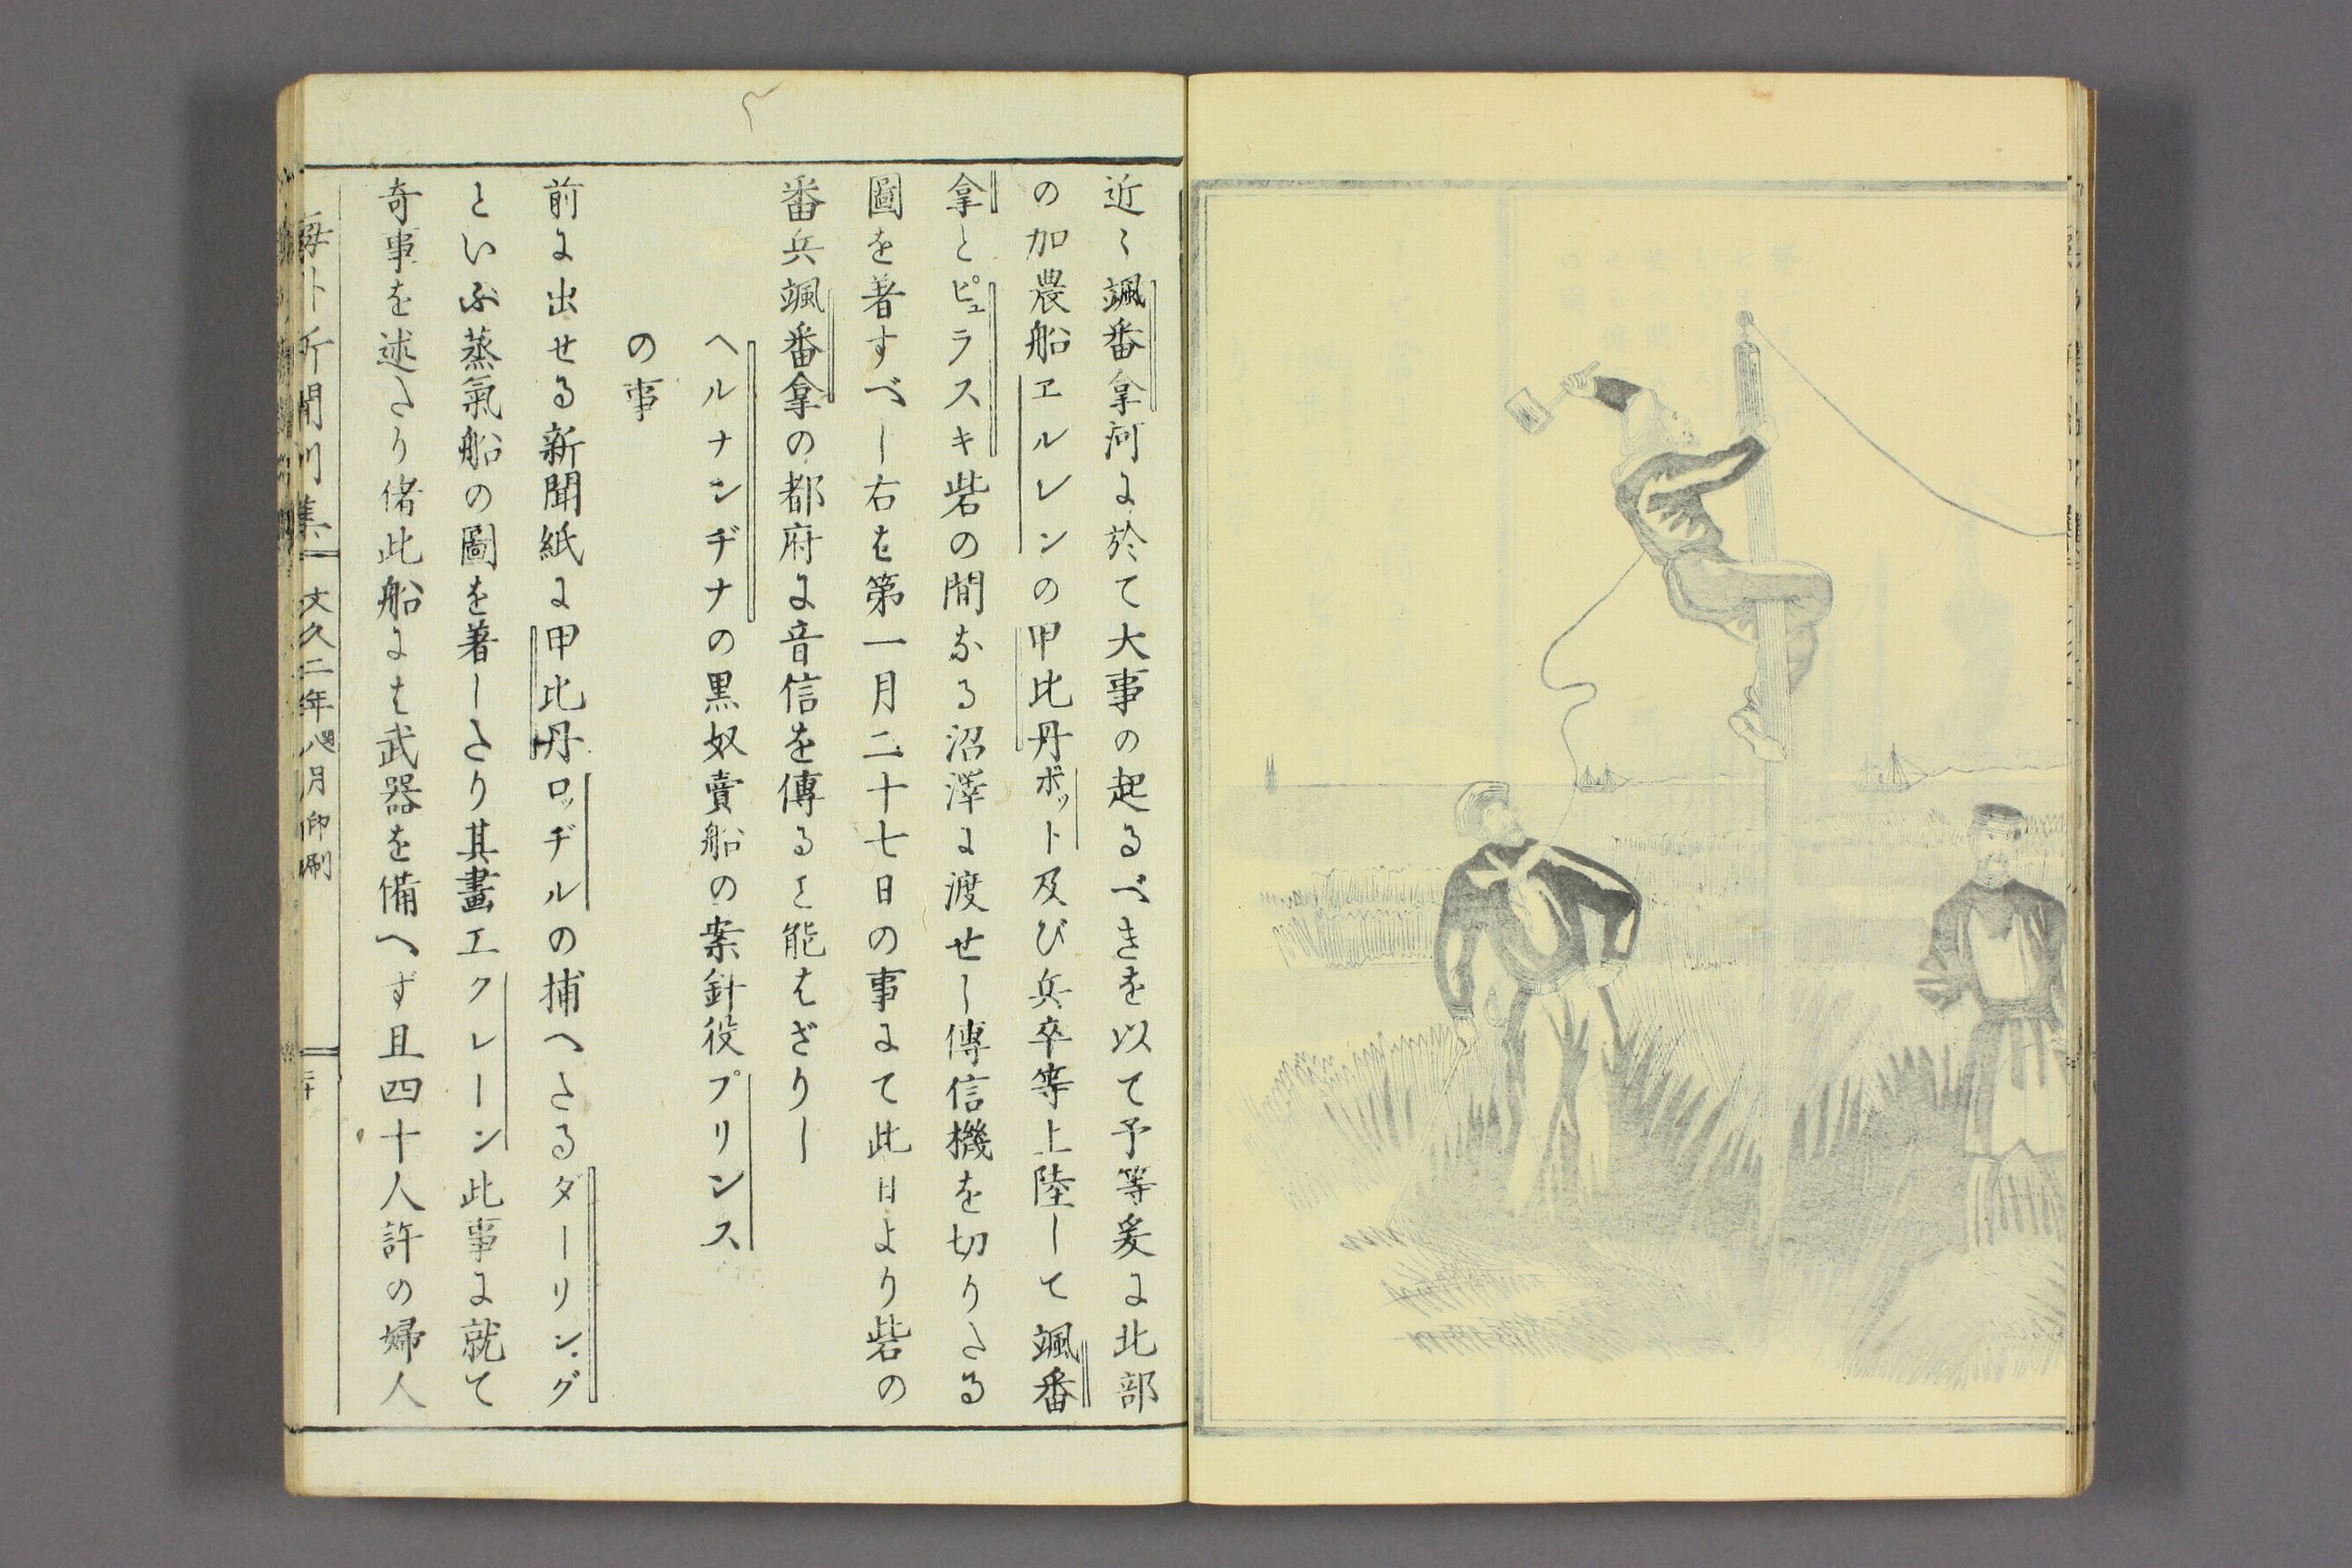 近く颯番拿河に於て大事の起るべきを以て予等爰に北部
の加農船ヱルレンの甲比丹ボット及び兵卒等上陸して颯番
拿とピュラスキ砦の間なる沼澤に渡せし傳信機を切りたる
圖を著すべし右を第一月二十七日の事にて此日より砦の
番兵颯番拿の都府に音信を傳るヿ能はざりし
ヘルナンヂナの黒奴賣船の案針役プリンス
の事
前に出せる新聞紙に甲比丹ロッヂルの捕へたるダーリング
といふ蒸氣船の圖を著したり其畫工クレーン此事に就て
奇事を述たり偖此船には武器を備へず且四十人許の婦人
文久二年閏八月印刷
二十